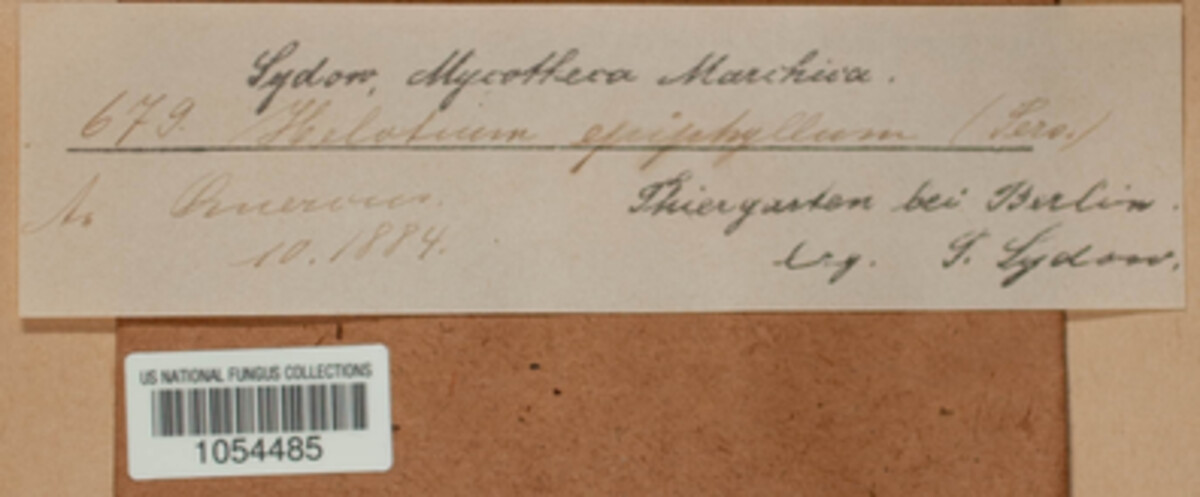 Sydow, Mycotheca Marchica.
679. Helotium epiphyllum (Pers.)
Thiergarten bei Berlin.
10. 1884.
Leg. P. Sydow.
US NATIONAL FUNGUS COLLECTIONS
1054485